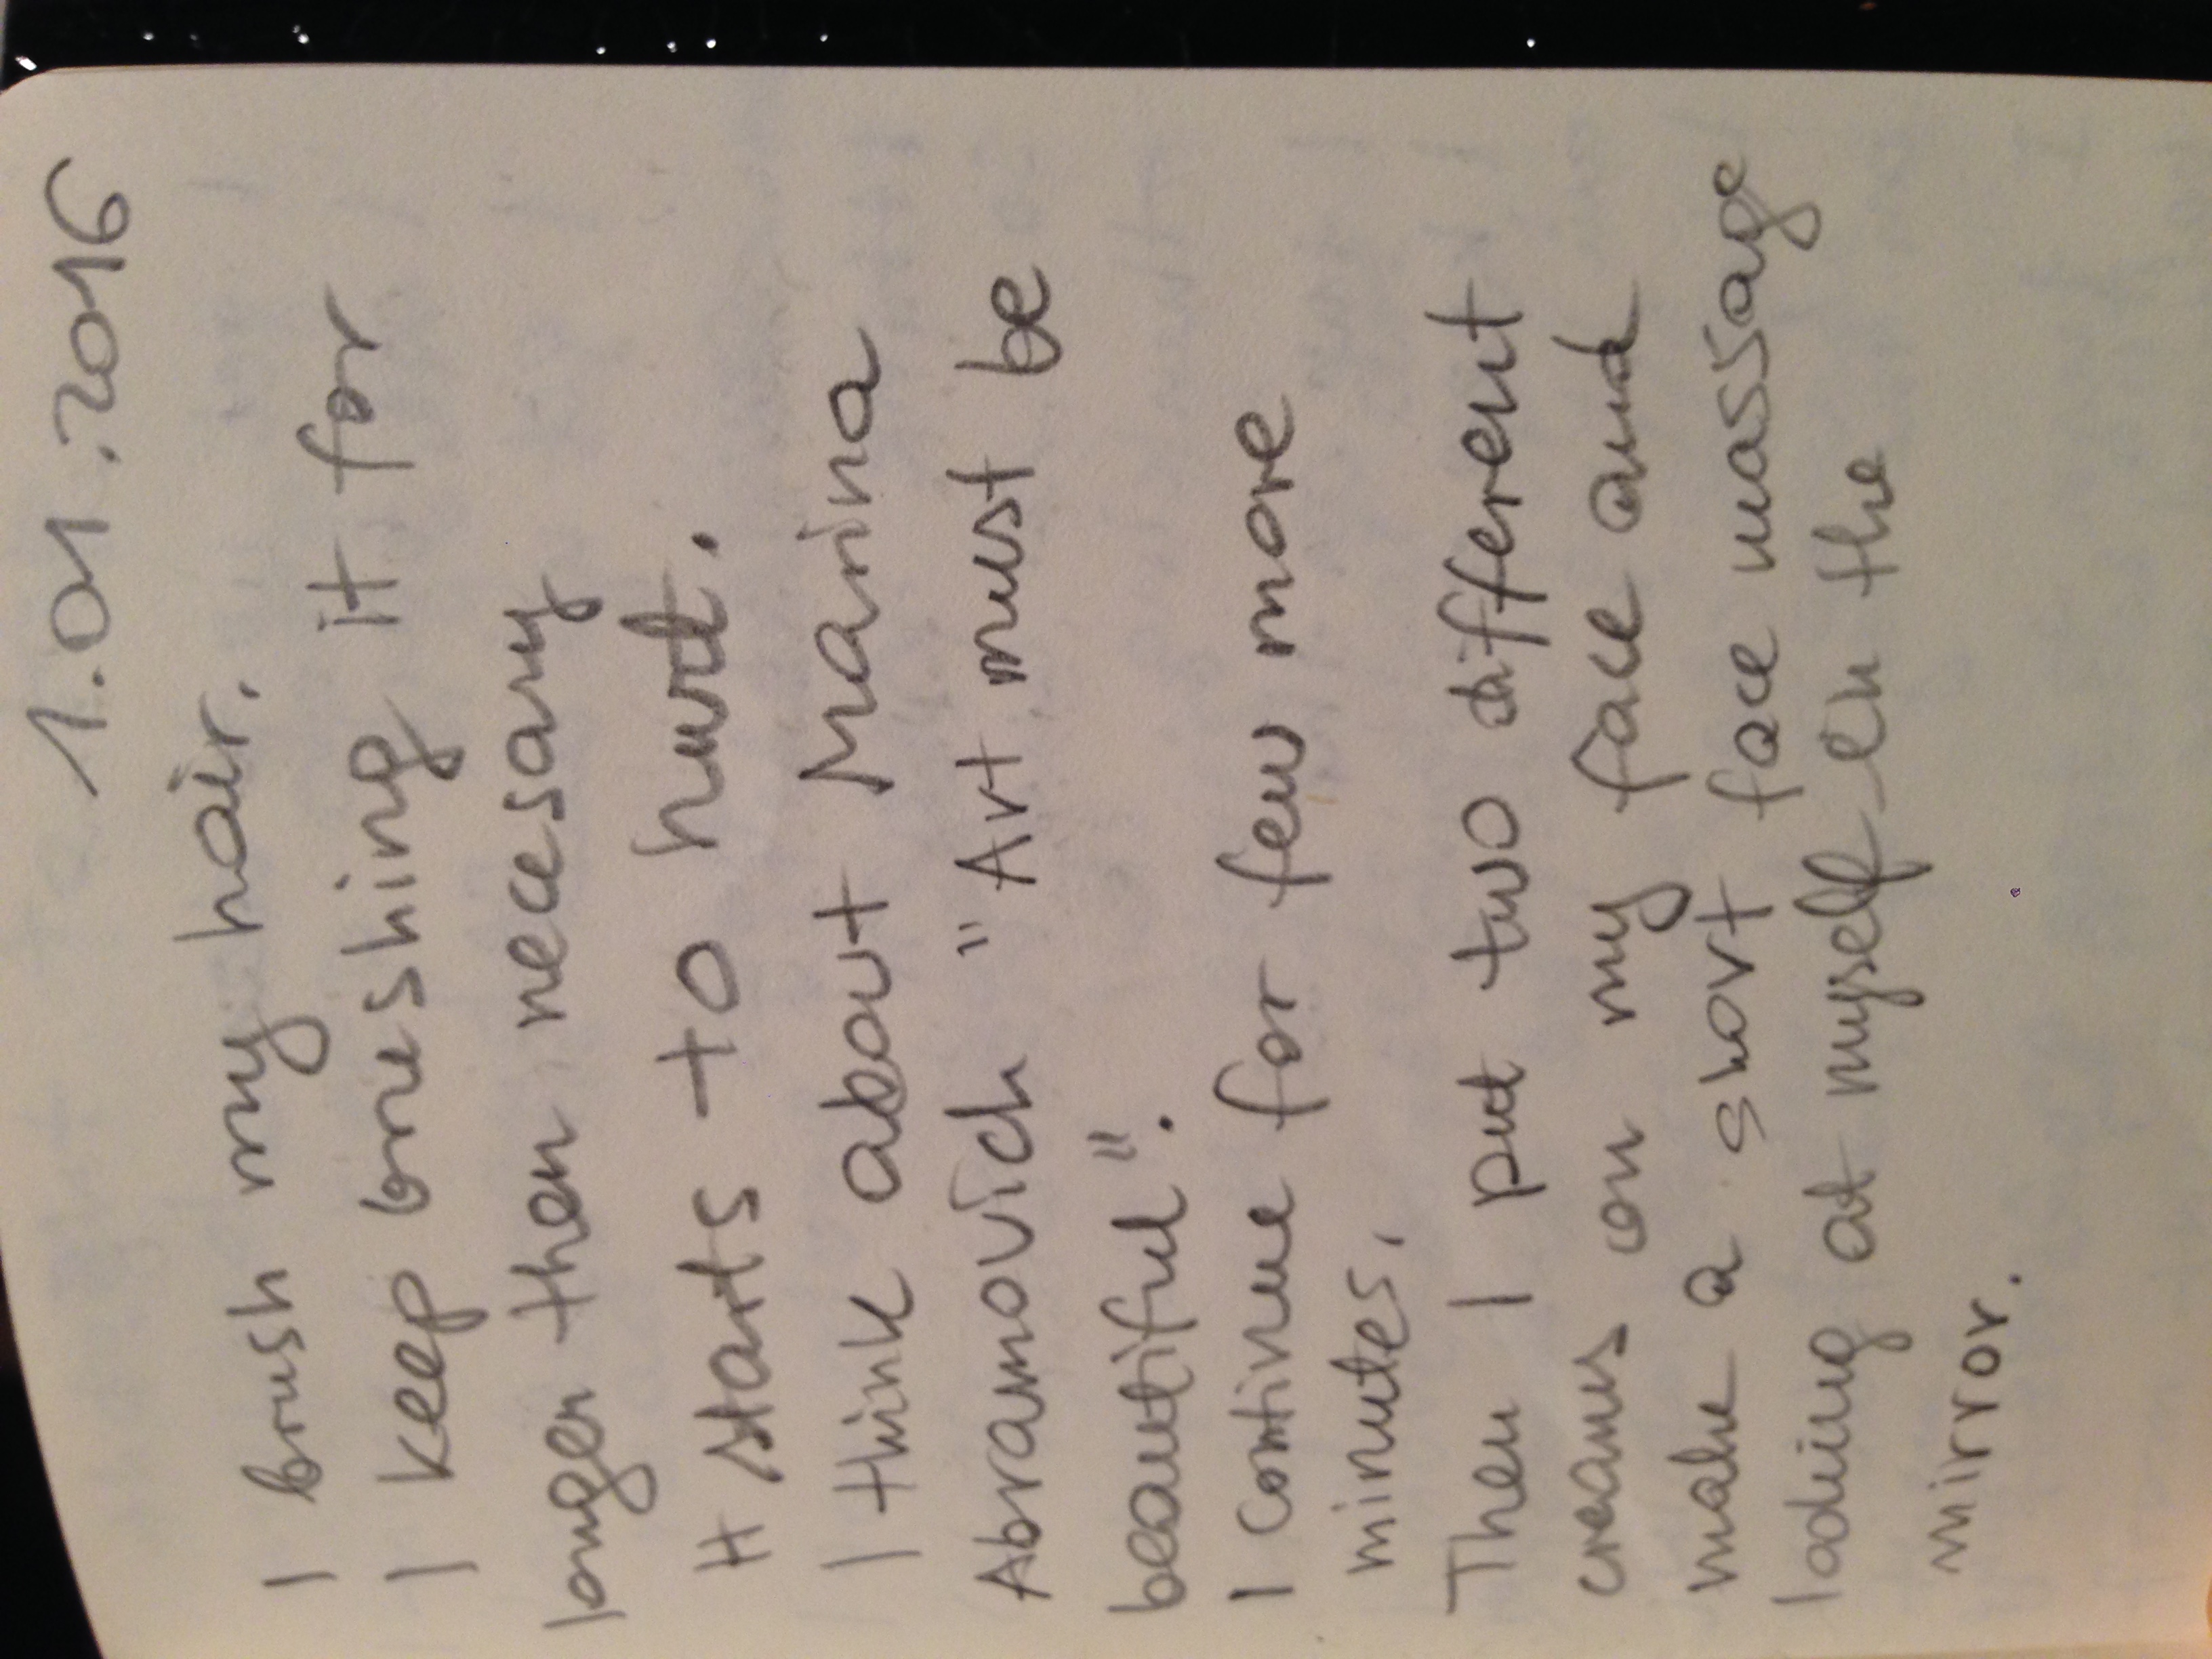 1.01.2016
I brush my hair.
I keep brushing it for
longer then necesary
It starts to hurt.
I think about Marina
Abramovich "Art must be
beautiful".
I continue for few more
minutes.
Then I put two different
creams on my face and
make a short face massage
loking at myself in the
mirror.